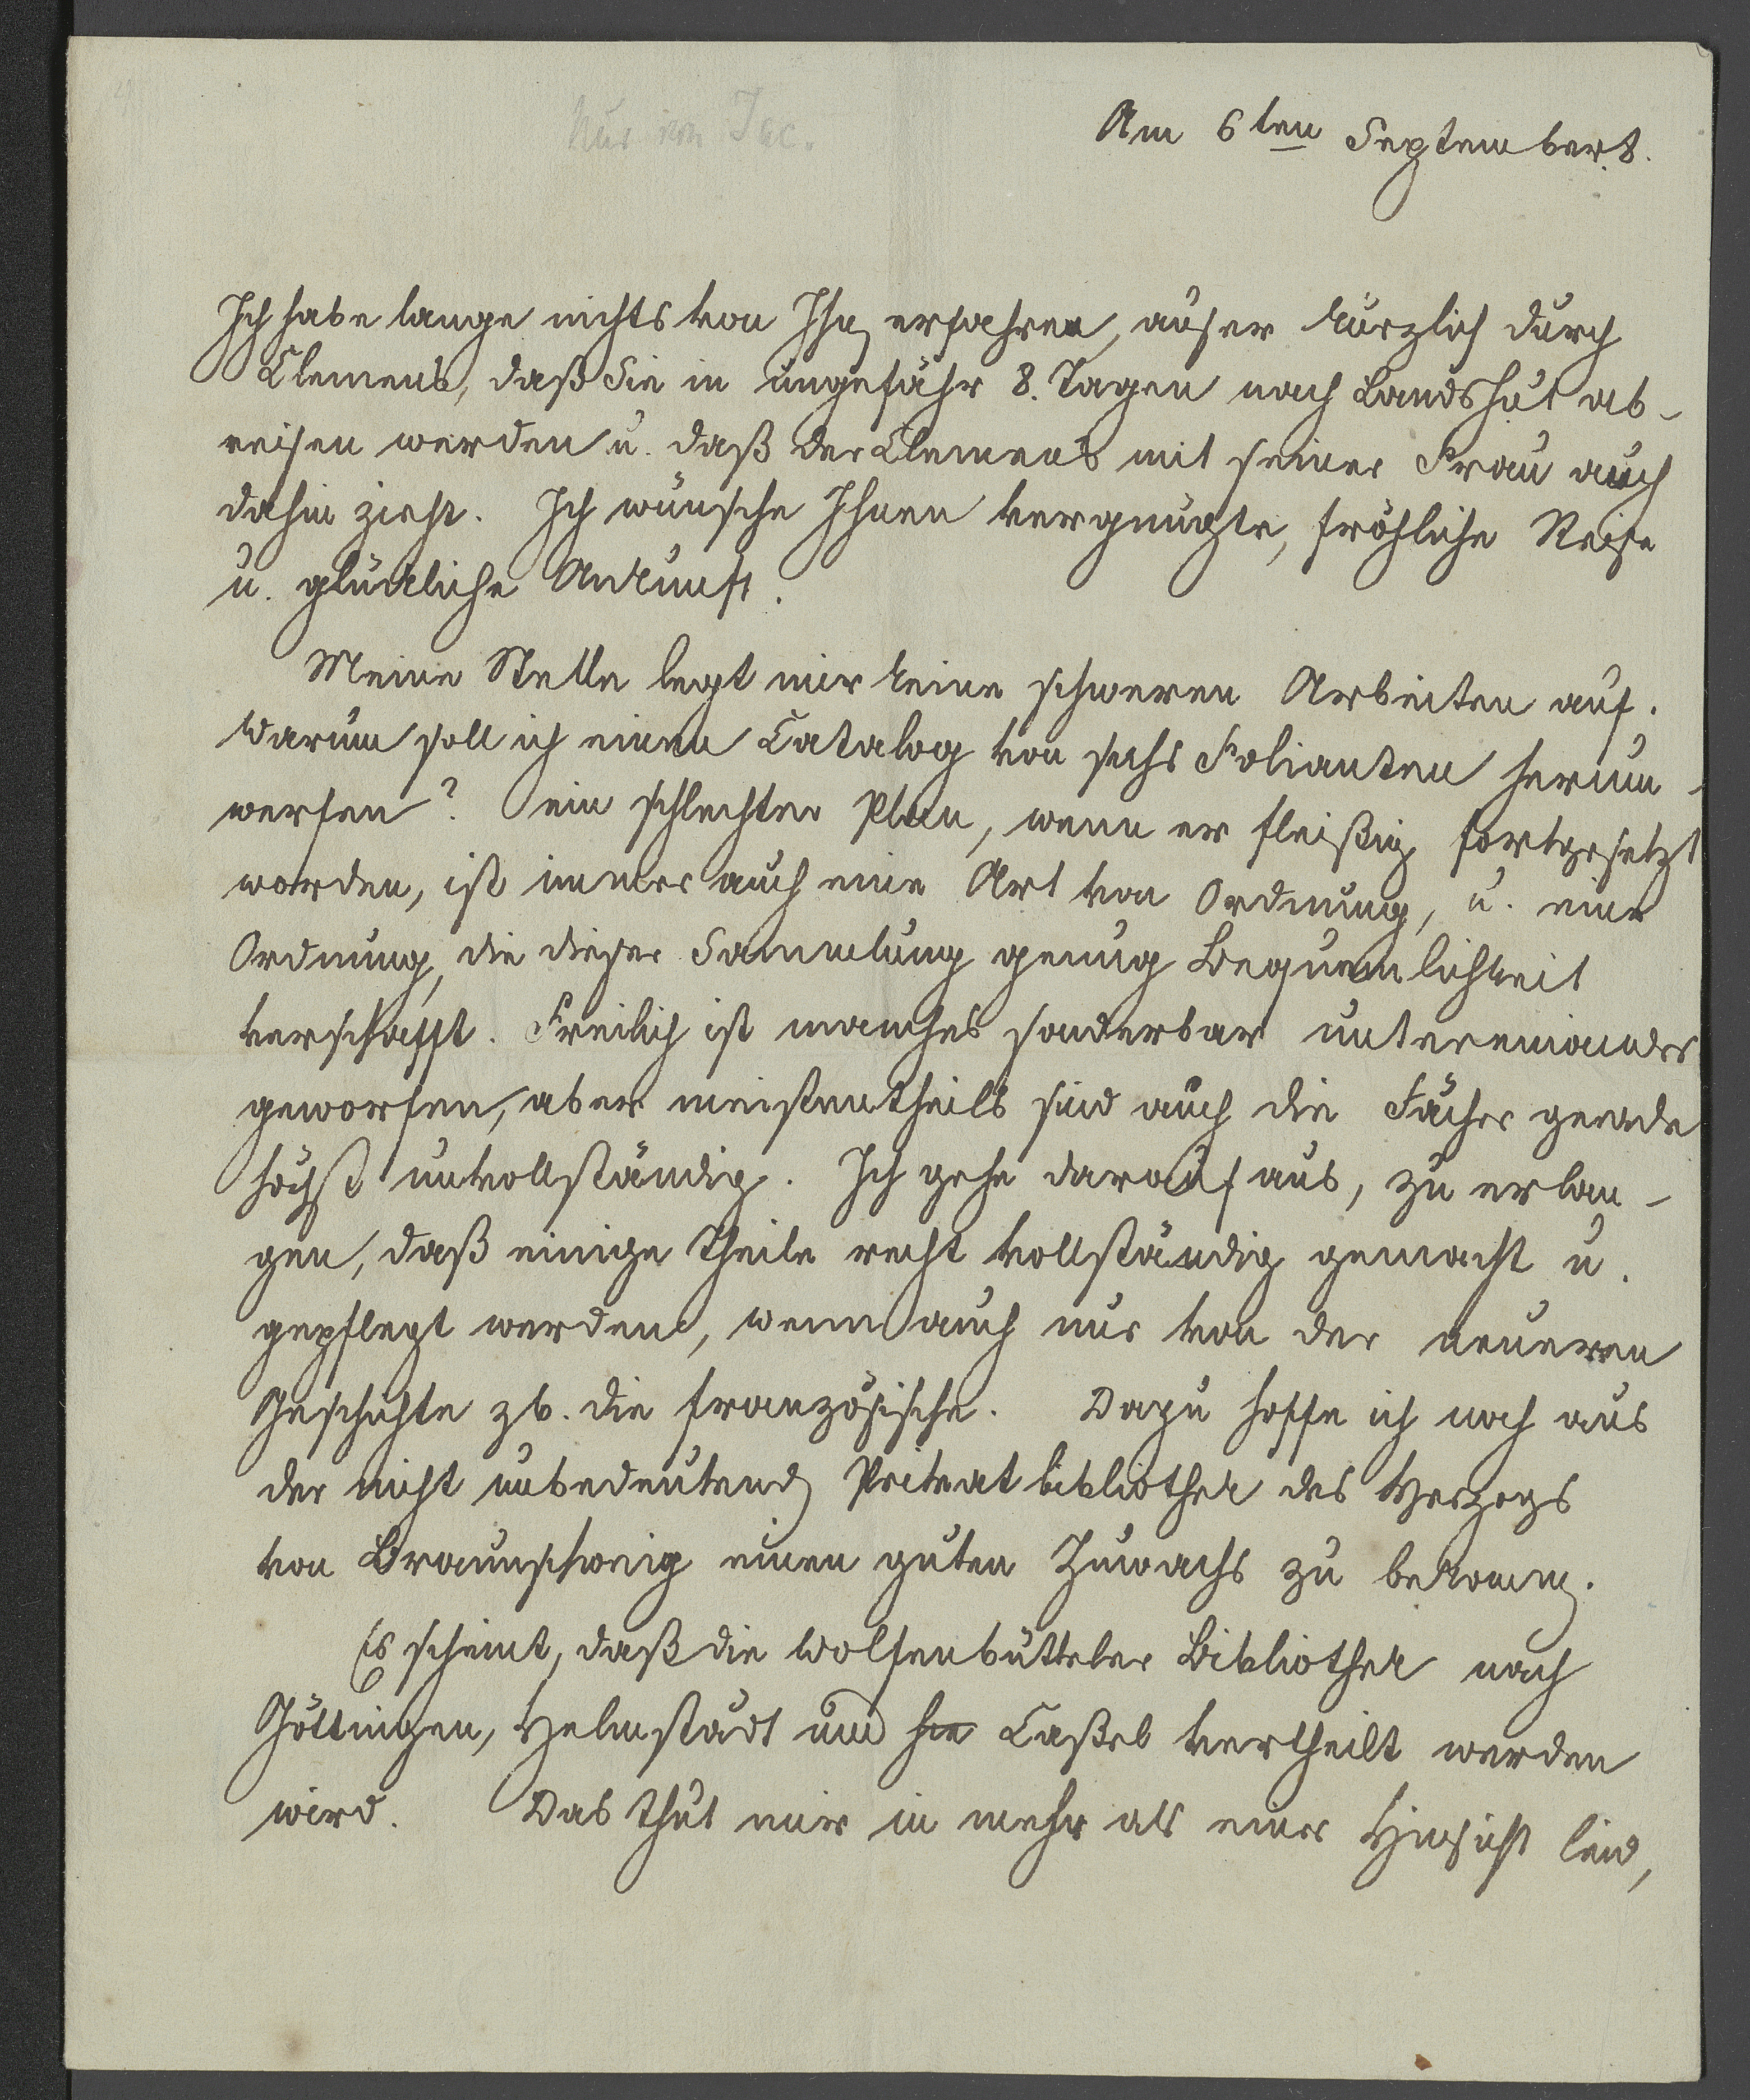 Nur von Jac.
Am 6ten September 8.
Ich habe lange nichts von Ihn erfahren, außer kürzlich durch
Clemens, daß Sie in ungefähr 8. Tagen nach Landshut ab-
reisen werden u. daß der Clemens mit seiner Frau auch
dahin zieht. Ich wünsche Ihnen vergnügte, fröhliche Reise
u. glückliche Ankunft.
Meine Stelle legt mir keine schweren Arbeiten auf.
Warum soll ich einen Catalog von sechs Folianten herum-
werfen? ein schlechter Plan, wenn er fleißig fortgesetzt
worden, ist immer auch eine Art von Ordnung, u. eine
Ordnung, die dieser Sammlung genug Bequemlichkeit
verschafft. Freilich ist manches sonderbar untereinander
geworfen, aber meistentheils sind auch die Fächer gerade
höchst unvollständig. Ich gehe darauf aus, zu erlan-
gen, daß einige Theile recht vollständig gemacht u.
gepflegt werden, wenn auch nur von der neueren
Geschichte zb. die französische. Dazu hoffe ich noch aus
der nicht unbedeutend Privatbibliothek des Herzogs
von Braunschweig einen guten Zuwachs zu bekomm.
Es scheint, daß die Wolfenbütteler Bibliothek nach
Göttingen, Helmstädt und hie Caßel vertheilt werden
wird. Das thut mir in mehr als einer Hinsicht leid,